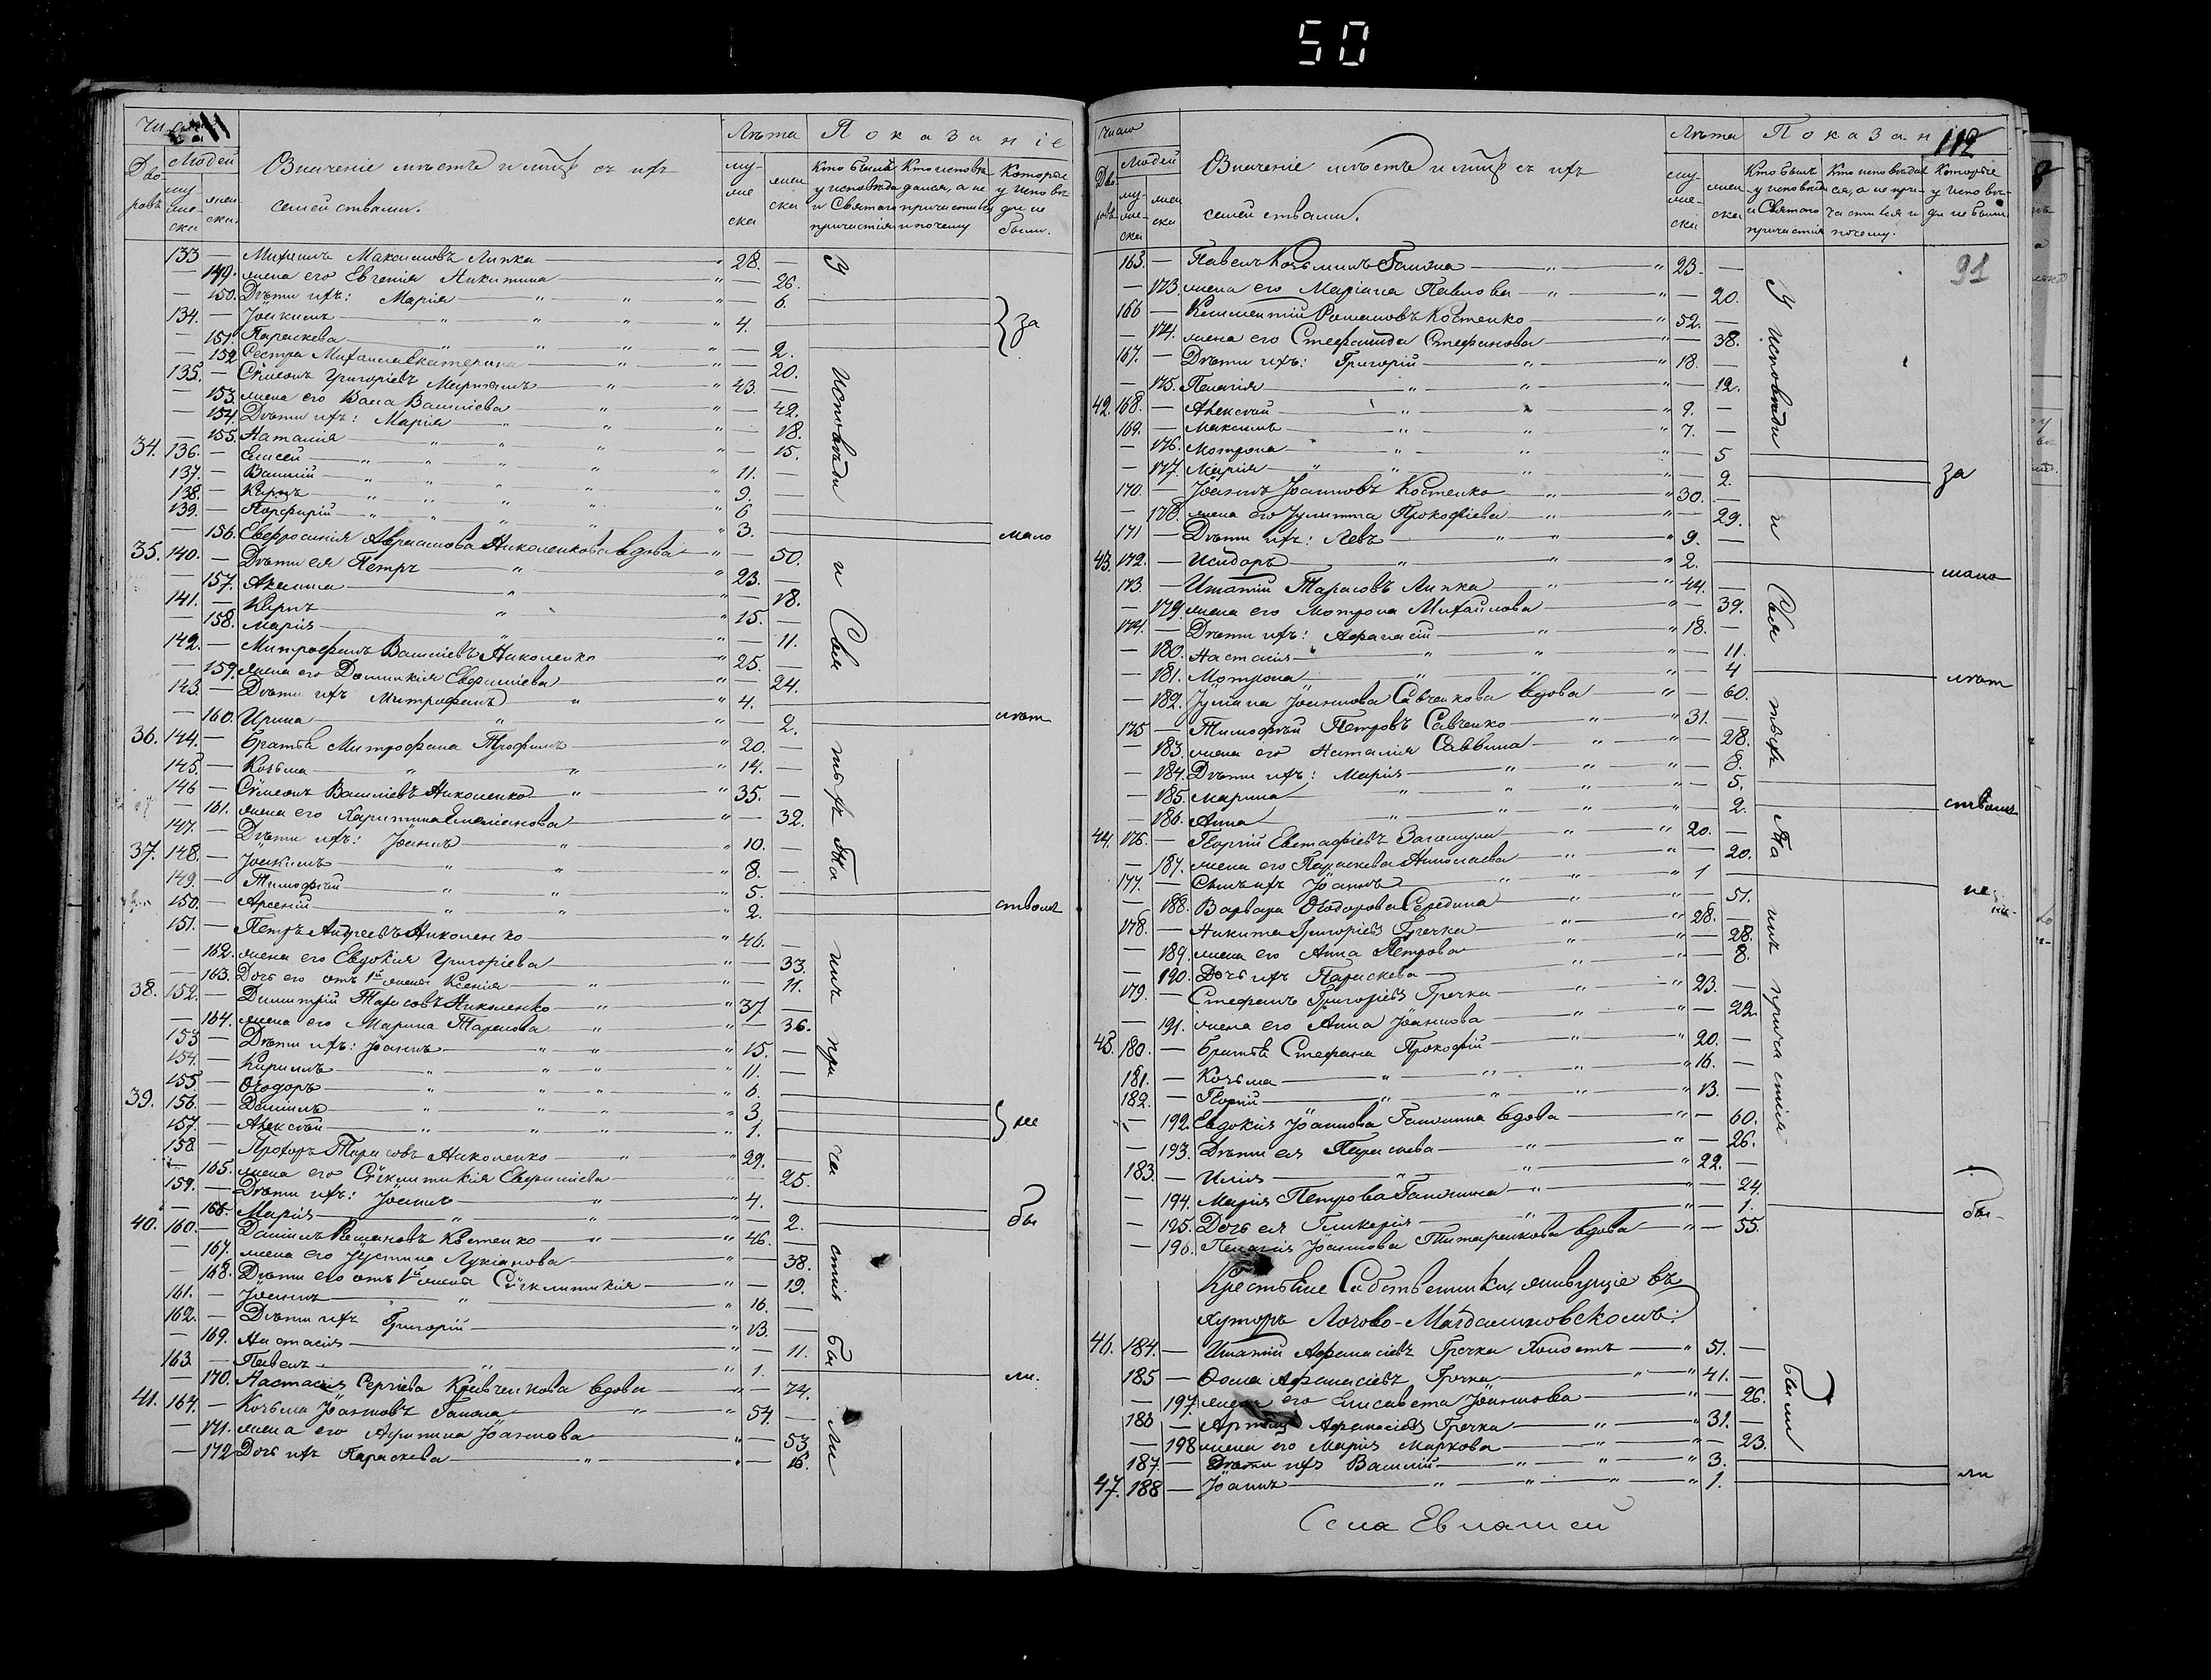 50
11
Число
Лѣта
Показаніе
Дво-
ровъ
Людей
му-
же-
ска
жен
ска
Означеніе мѣстъ и лицъ съ ихъ
семействами.
му-
же
ска
жен
ска
Кто былъ
у исповѣди
и Святаго
причастія
Кто исповѣ
дался, а не
причастился
и почему
Которые
у исповѣ-
ди не
были.
133 — Михаилъ Максимовъ Липка 28. —
— 149. жена его Евгенія Никитина — 26.
— 150. Дѣти ихъ: Марія — 6.
134. — Іоакимъ 4.
— 151. Параскева — 2.
— 152 Сестра Михаила Екатерина — 20.
135. — Сѵмеонъ Григорьевъ 43. —
— 153. жена его Васса Васильева — 42.
— 154. Дѣти ихъ: Марія — 18.
— 155. Наталія — 15.
34. 136. — Елисей 11. —
137. — Василій 9. —
138. — Карпъ 6
139. — Порфирій 3.
— 156. Евфросинія Авраамова Николенкова вдова — 50.
35. 140. — Дѣти ея Петръ 23. —
— 157. Акилина — 18.
141. — Карпъ 15. —
— 158. Марія — 11.
142. — Митрофанъ Васильевъ Николенко 25. —
— 159. жена его Домникія Евфиміева — 24.
143. — Дѣти ихъ Митрофанъ 4.
— 160. Ирина — 2.
36. 144. — Братья Митрофана Трофимъ 20. —
145. — Козьма 14. —
146 — Сѵмеонъ Васильевъ Николенко 35. —
— 161. жена его Харитина Емеліанова — 32.
147. — Дѣти ихъ: Іоаннъ 10. —
37. 148. — Іоакимъ 8. —
149. — Тимофей 5.
150. — Арсеній 2.
151. — Петръ Андреевъ Николенко 46. —
— 162. жена его Евдокія Григоріева — 33.
— 163. Дочь его отъ 1й жены Ксенія — 11.
38. 152. — Димитрій Тарасовъ Николенко 37. —
— 164. жена его Марина Тарасова — 36.
153 — Дѣти ихъ: Іоаннъ 15. —
154. — Кириллъ 11. —
155. — Ѳеодоръ 6.
39. 156. — Даніилъ 3
157. — Алексѣй 1.
158 Прохоръ Тарасовъ Николенко 29. —
— 165. жена его Сѵнклитикія Евфиміева — 25.
159. — Дѣти ихъ: Іоаннъ 4.
— 166. Марія — 2.
40. 160. — Даніилъ Романовъ Костенко 46. —
— 167. жена его Іустина Лукіанова — 38.
— 168. Дѣти его отъ 1й жены Сѵнклитикія — 19.
161. — Іоаннъ 16. —
162. — Дѣти ихъ Григорій 13. —
— 169. Настасія — 11.
163 — Павелъ 1.
— 170. Настасія Сергіева Кривченкова вдова — 74.
41. 164. — Козьма Іоанновъ Гапона 54. —
— 171. жена его Іоаннова — 53.
— 172 Дочь ихъ Параскева — 16.
У исповѣди и Свя тыхъ Та инъ при ча стія бы ли
за мало лѣт ствомъ не бы ли.
112
91
Число
Лѣта
Показан
Дво-
ровъ
Людей
му-
же-
ска
жен
ска
Означеніе мѣстъ и лицъ съ ихъ
семействами.
му-
же-
ска
жен
ска
Кто былъ
у исповѣди
и Святаго
причастія
Кто исповѣдал
ся, а не при-
частился и
почему.
Которые
у исповѣ-
ди не были
165. — Павелъ Козьминъ Гапона 23. —
— 173. жена его Маріана Павлова — 20.
166 — Климентій Романовъ Костенко 52. —
— 174. жена его Стефанида Стефанова — 38.
167. — Дѣти ихъ: Григорій 18. —
— 175. Пелагія — 12.
42. 168. — Алексѣй 9. —
169. — Максимъ 7. —
— 176. Мотрона — 5
— 177. Марія — 2.
170. — Іоаннъ Іоанновъ Костенко 30. —
— 178. жена его Іулитта Прокофіева — 29.
171 — Дѣти ихъ: Левъ 9. —
43. 172. — Исидоръ 2.
173 — Игнатій Тарасовъ Липка 44. —
— 179. жена его Мотрона Михайлова — 39.
174. — Дѣти ихъ: Афанасій 18. —
— 180. Настасія — 11.
— 181. Мотрона — 4
— 182. Іуліана Іоаннова Савченкова вдова — 60.
175 — Тимофѣй Петровъ Савченко 31. —
— 183. жена его Наталія Саввина — 28.
— 184. Дѣти ихъ: Марія — 8.
— 185. Марина — 5.
— 186. Анна — 2.
44. 176. — Георгій Евстафіевъ 20. —
— 187. жена его Параскева Николаева — 20.
177. — Сынъ ихъ Іоаннъ 1
— 188. Варвара Ѳеодорова Середина — 51.
178. — Никита Григоріевъ Гречка 28. —
— 189. жена его Анна Петрова — 28.
— 190. Дочь ихъ Параскева — 8.
179. — Стефанъ Григоріевъ Гречка 23. —
— 191. жена его Анна Іоаннова — 22.
45. 180. — Братья Стефана Прокофій 20. —
181. — Козьма 16. —
182. — Георгій 13. —
— 192. Евдокія Іоаннова Гапонина вдова — 60.
— 193. Дѣти ея Параскева — 26.
183. — Илія 22. —
— 194. Марія Петрова Гапонина — 24.
— 195. Дочь ея Гликерія — 1.
— 196. Пелагія Іоаннова Титаренкова вдова — 55.
Крестьяне Собственники, живущіе въ
хуторѣ Логово-Магдалиновскомъ:
46. 184. — Игнатій Афанасіевъ Гречка Холостъ 51. —
185 — Ѳома Афанасіевъ Гречка 41. —
— 197. жена его Елисавета Іоаннова — 26.
186 — Афанасіевъ Гречка 31. —
— 198 жена его Марія Маркова — 23.
187. — Дѣти ихъ Василій 3.
47. 188 — Іоаннъ 1.
У исповѣди и Свя тыхъ Та инъ причастія были
за мало лѣт ствомъ не бы- ли
Села Евлашей